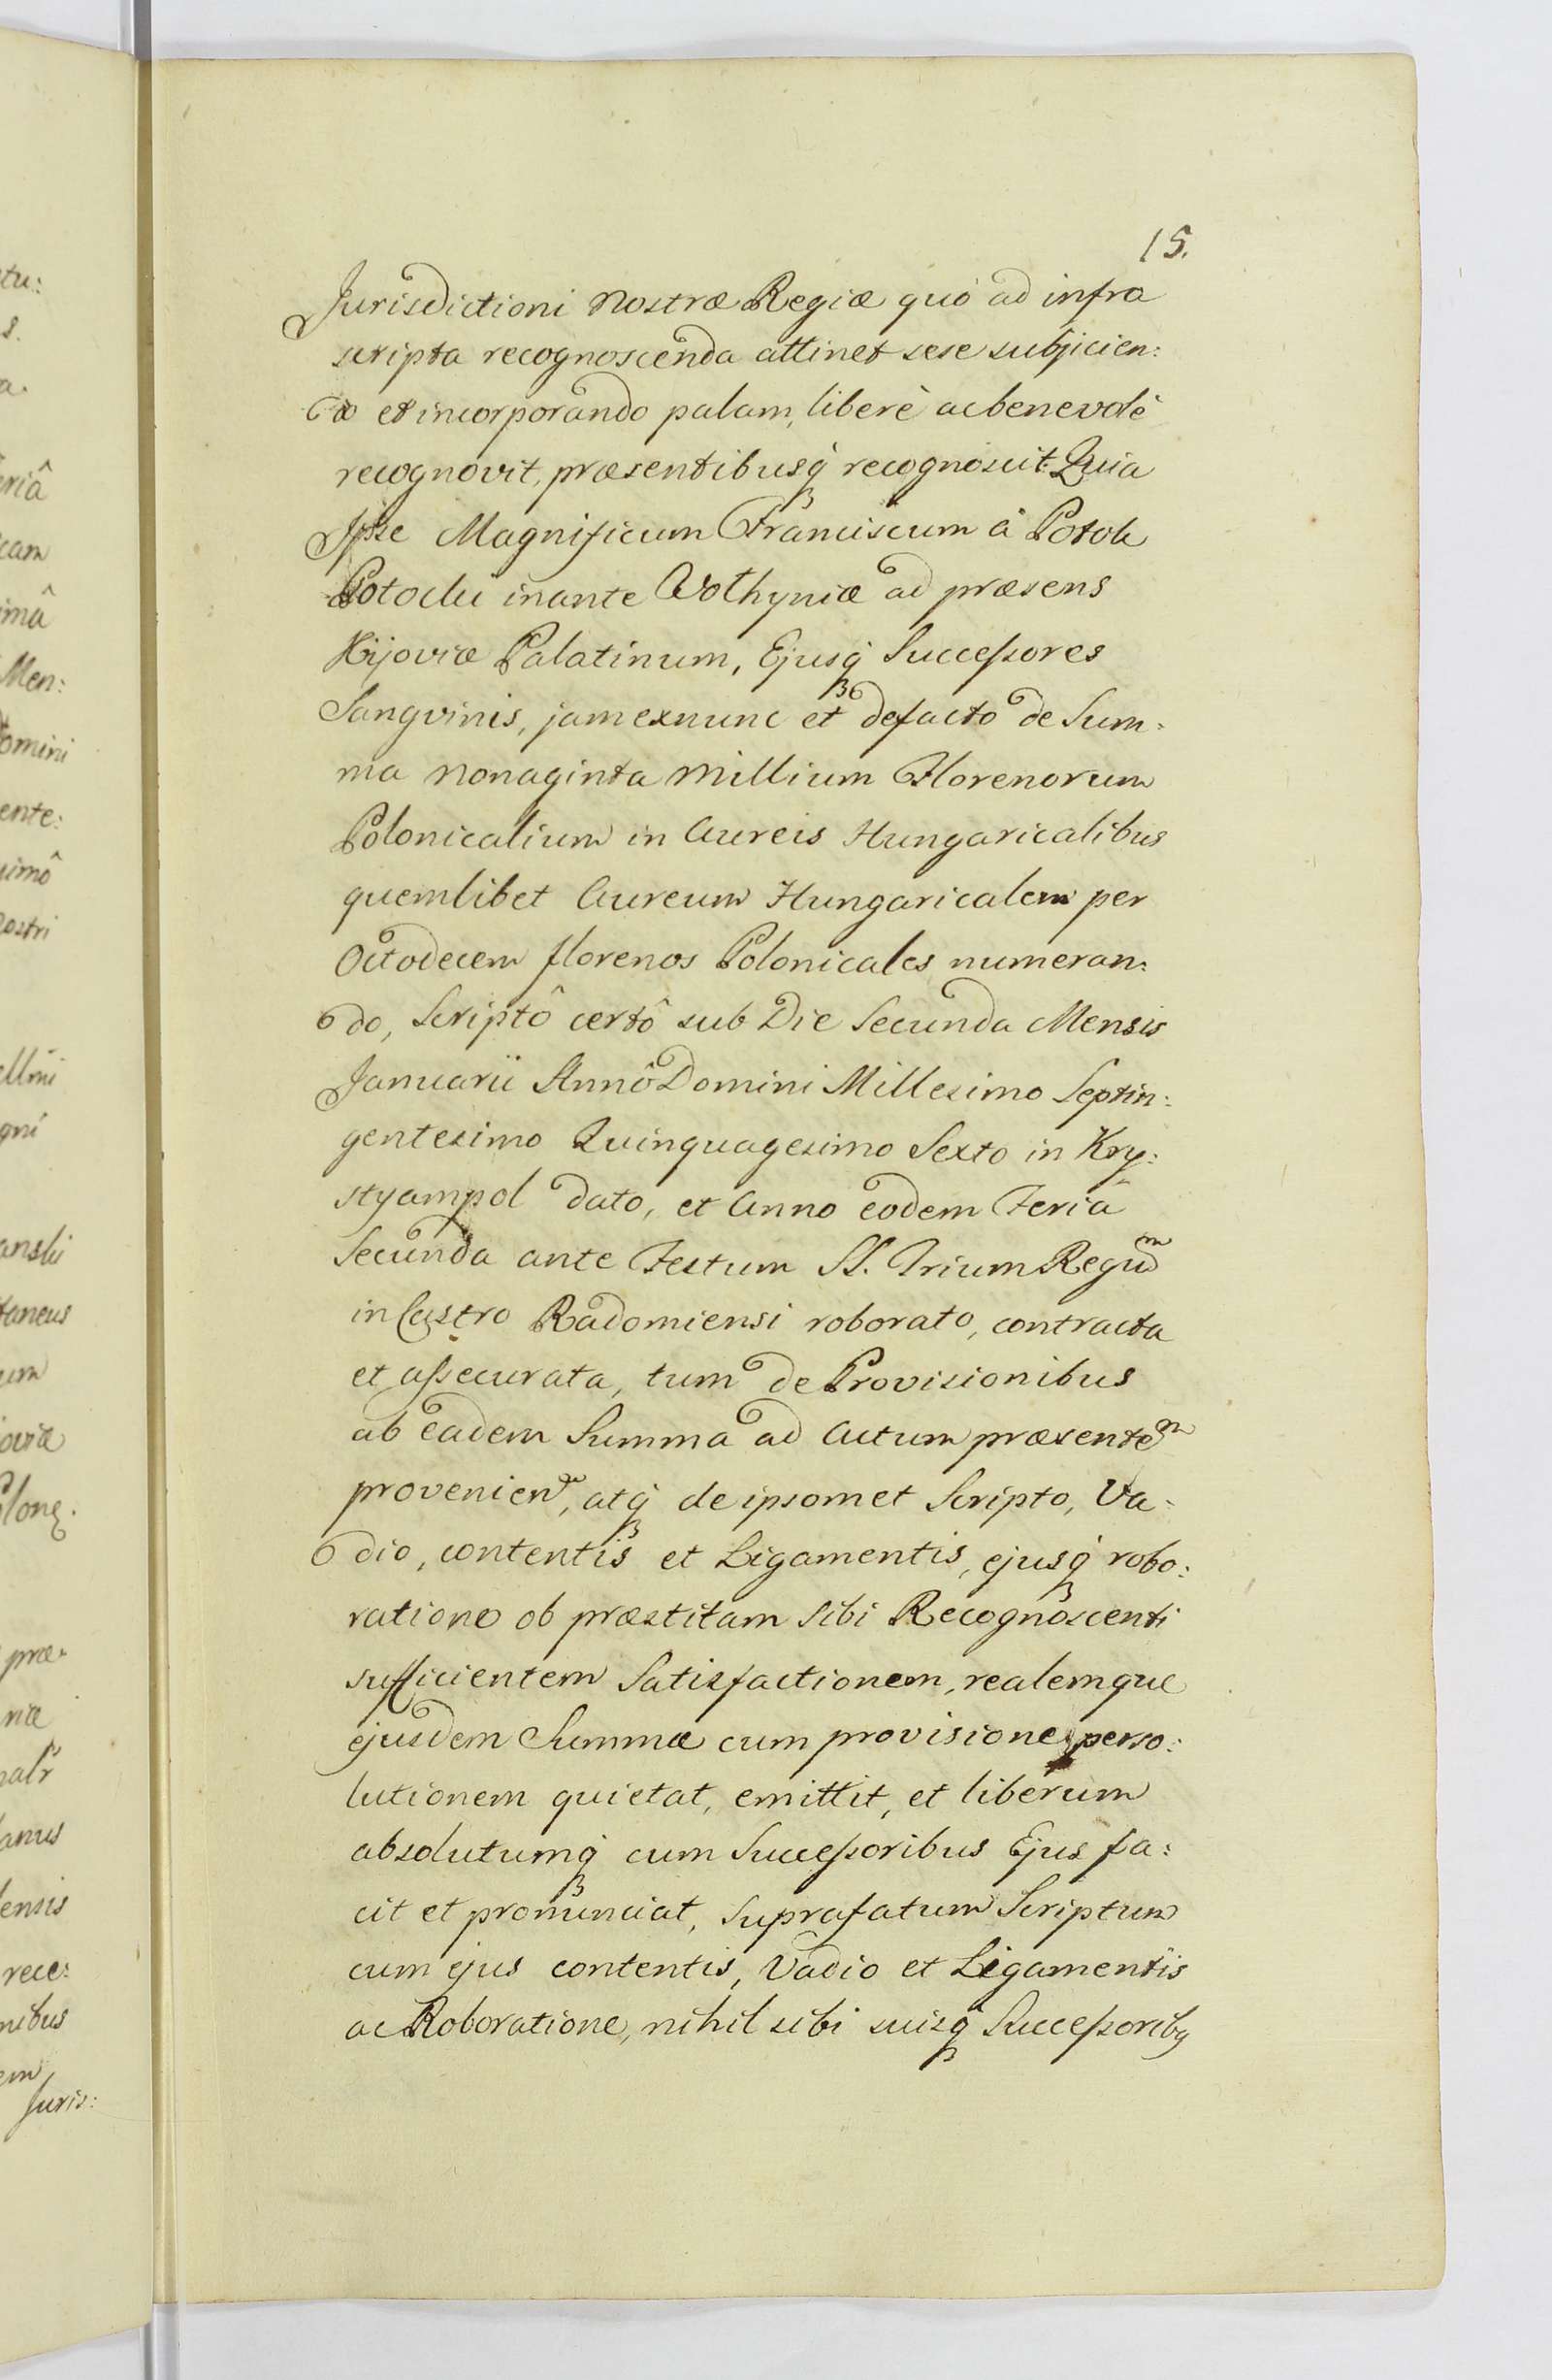 15.
Jurisdictioni nostræ Regiæ quò ad infra
scripta recognoscenda attinet sese subjicien:
do et incorporando palam, liberè ac benevolè
recognovit, præsentibusq́ recognoscit: Quia
Ipse Magnificum Franciscum à Potok
Potocki inante Volhyniæ ad præsens
Kijoviæ Palatinum, Ejusq́ Successores
Sangvinis, jam exnunc et defacto de Sum:
ma nonaginta millium Florenorum
Polonicalium in Aureis Hungaricalibus
quemlibet Aureum Hungaricalem per
Octodecem florenos Polonicales numeran:
do, Scriptô certô sub Die Secunda Mensis
Januarii Annô Domini Millesimo Septin:
gentesimo Quinquagesimo Sexto in Kry:
styampol dato, et Anno eodem Feriâ
Secunda ante Festum SS. Trium Regum
in Castro Radomiensi roborato, contracta
et assecurata, tum de Provisionibus
ab eadem Summa ad Actum præsentem
provenien, atq́ de ipsomet Scripto, Va:
dio, contentis et Ligamentis, ejusq́ robo:
ratione ob præstitam sibi Recognoscenti
sufficientem Satisfactionem, realemque
ejusdem Summæ cum provisione perso:
lutionem quietat, emittit, et liberum
absolutumq́ cum Successoribus Ejus fa:
cit et pronunciat, Suprafatum Scriptum
cum ejus contentis, Vadio et Ligamentis
ac Roboratione, nihil sibi suisq́ Successoribꝰ
tu:
s.
a.
eriâ
cam
imâ
Men:
omini
ente:
simô
ostri
gni
anski
taneus
um
oviæ
olonę.
præ
anus
ensis
rece:
nibus
em
Juris: